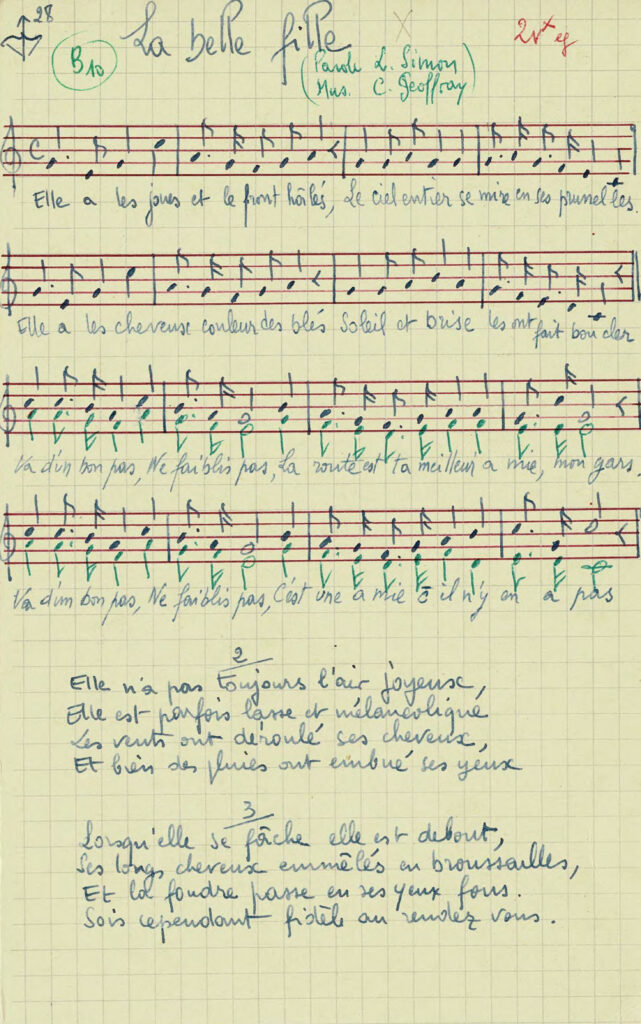 28
La belle fille
2vx eg
B10
(Parole L. Simon)
(Mus. C. Geoffray)
C
Elle a les joues et le front hâlés, Le ciel entier se mire en ses prunelles.
Elle a les cheveux couleur des blés Soleil et brise les ont fait boucler
Va d'un bon pas, Ne faiblis pas, La route est ta meilleur' a mie, mon gars.
Va d'un bon pas, Ne faiblis pas, C'est une a mie c̄ il n'y en a pas
2
Elle n'a pas toujours l'air joyeux,
Elle est parfois lasse et mélancolique
Les vents ont déroulé ses cheveux,
Et bien des pluies ont embué ses yeux
3
Lorsqu'elle se fâche elle est debout,
Ses longs cheveux emmêlés en broussailles,
Et la foudre passe en ses yeux fous.
Sois cependant fidèle au rendez vous.